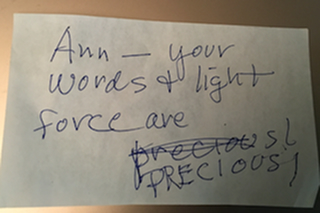 Ann — your
words & light
force are
precious!
PRECIOUS!